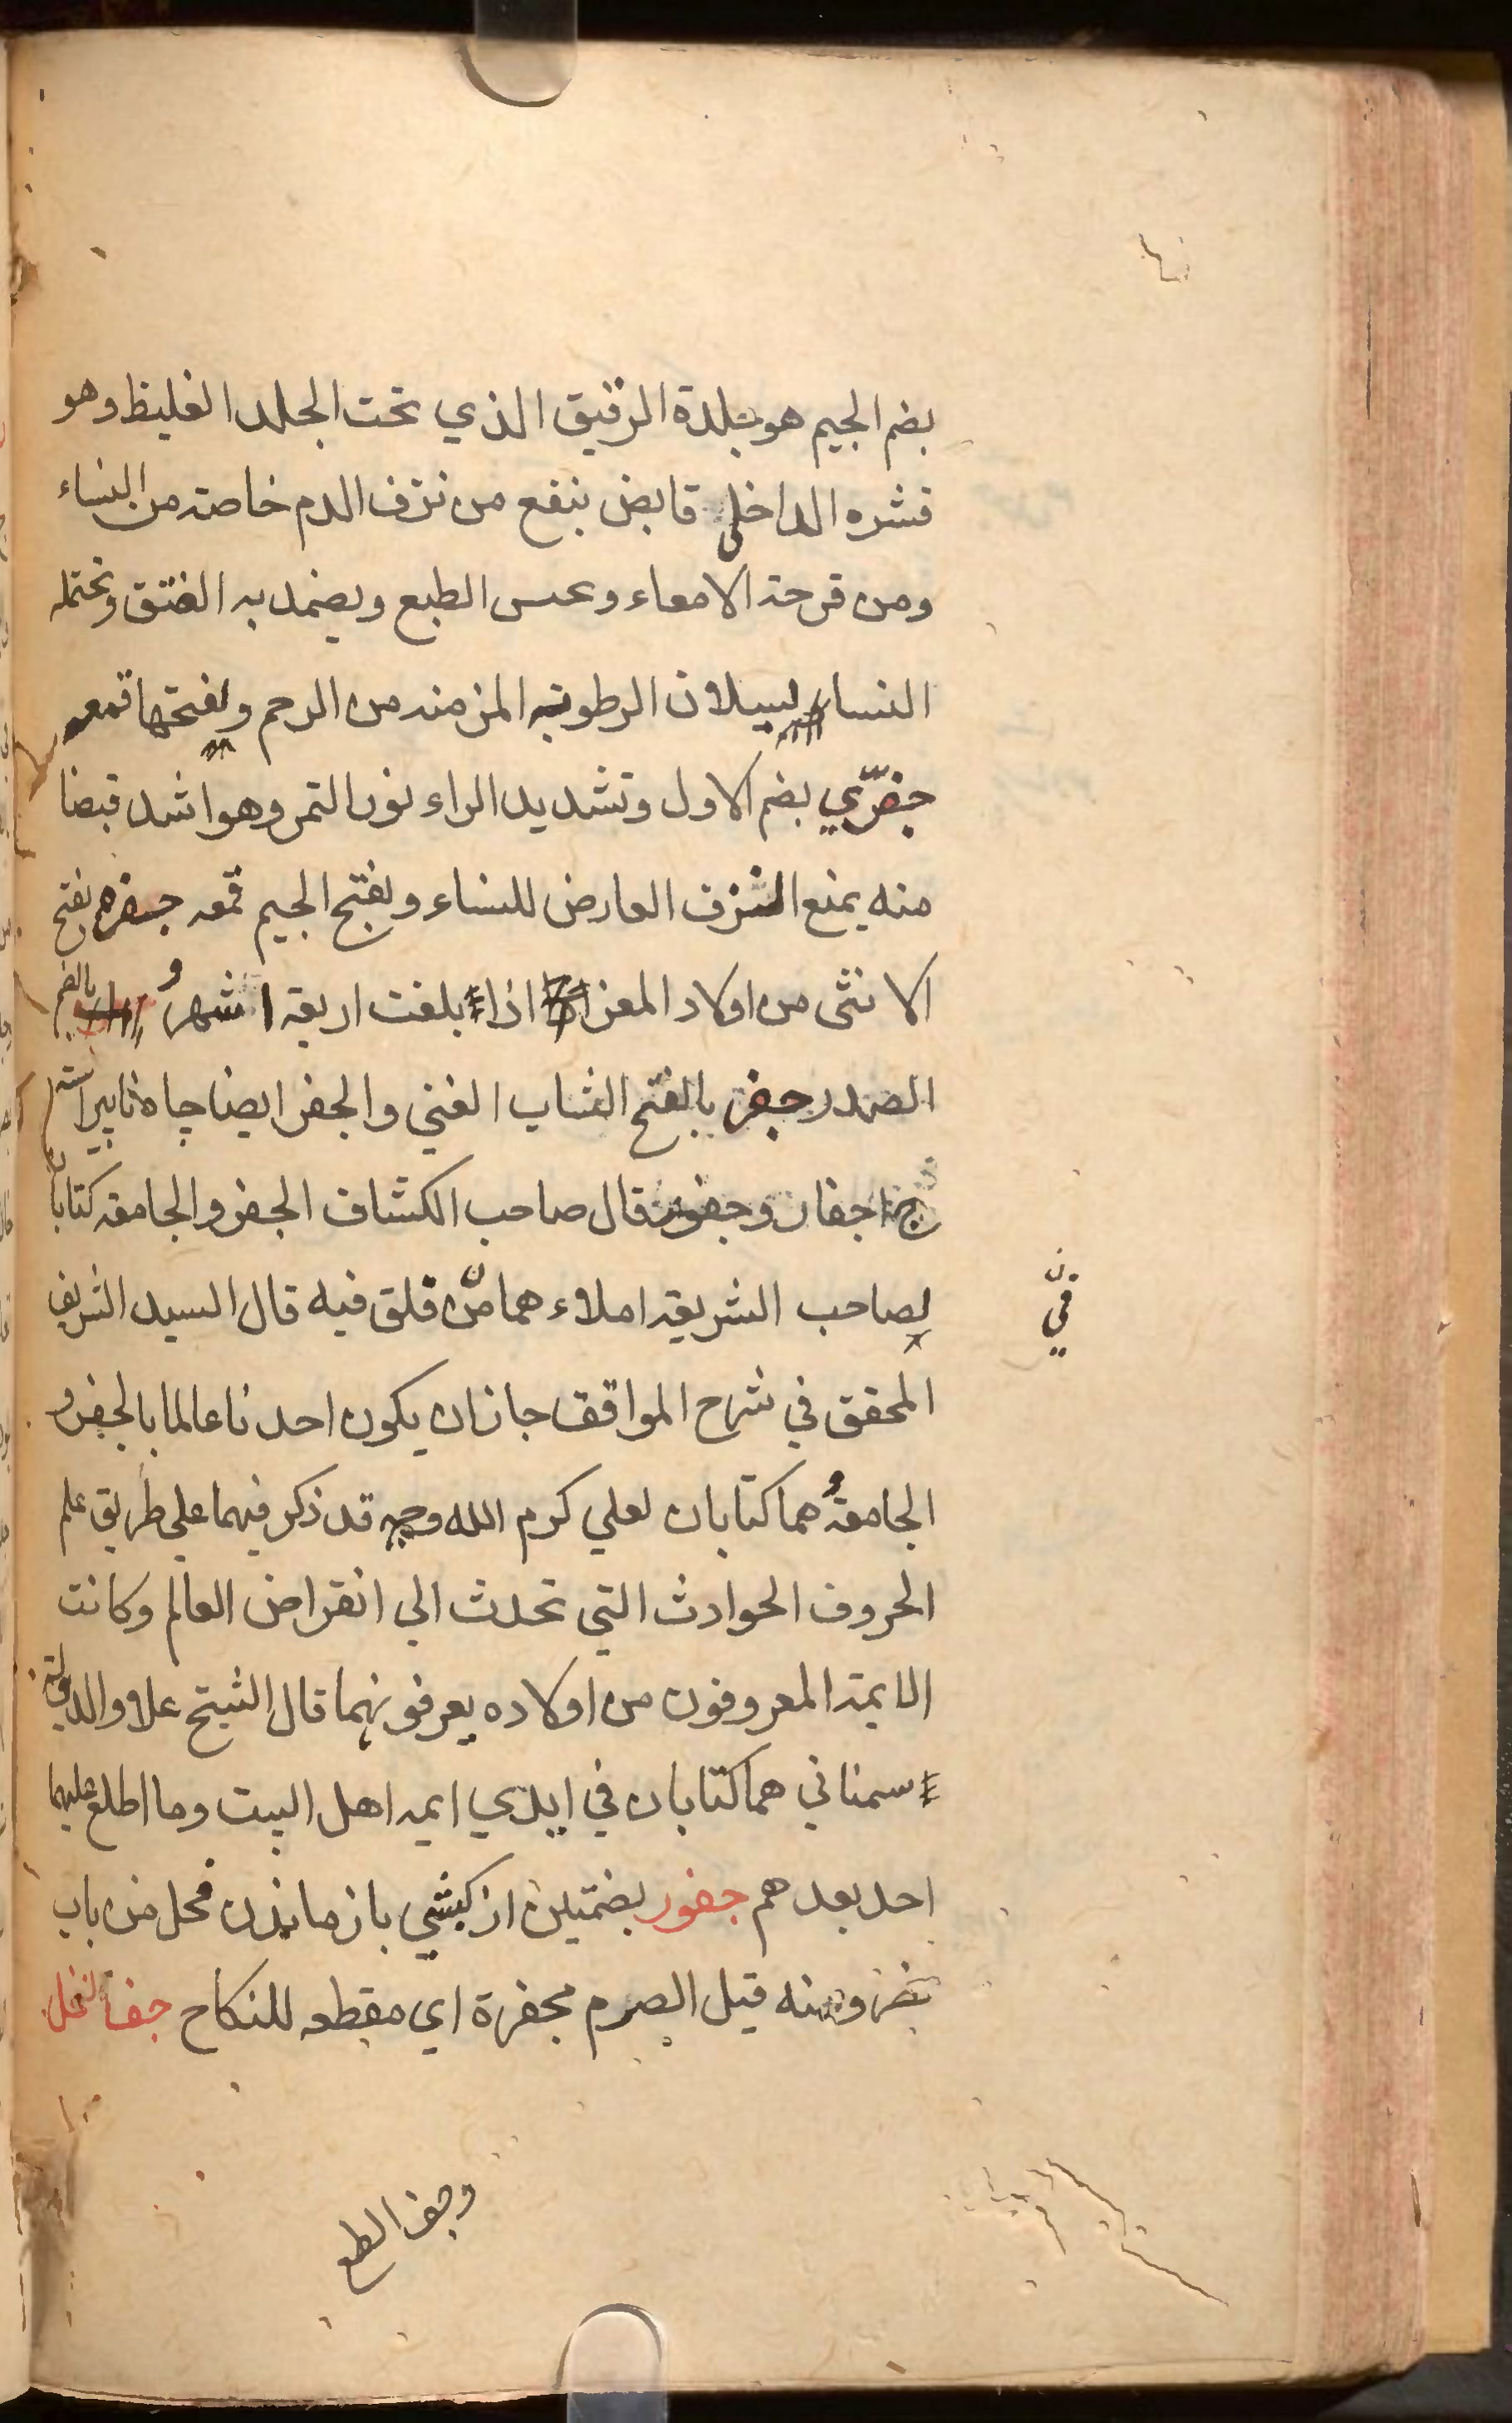 بضم الجيم هو جلدة الرقيق الذي تحت الجلد الغليظ وهو
قشره الداخلى قابض ينفع من نزف الدم خاصة من النساء
ومن قرحة الامعاء وعسر الطبع ويضمد به الفتق وتحتمله
النساء لسيلان الرطوبة المزمنه من الرحم وبفتحها قمعه
جفرّي بضم الاول وتشديد الراء نور التمر وهو اشد قبضا
منه يمنع النزف العارض للنساء وبفتح الجيم قمعه جفره بفتح
الانثى من اولاد المعز اذا بلغت اربعة اشهر و بالضم
الصدر جفر بالفتح الشاب الغني والجفر ايضا چاه ناپيراسته
ج اجفار وجفور قال صاحب الكشاف الجفر والجامعه كتابان
لصاحب الشريعه املاء هما من فلق فيه قال السيد الشريف
في
المحقق في شرح المواقف جاز ان يكون احدنا عالما بالجفر و
الجامعة و هما كتابان لعلي كرم الله وجهه قد ذكر فيهما علي طريق علم
الحروف الحوادث التي تحدث الي انقراض العالم وكانت
الايمة المعروفون من اولاده يعرفونهما قال الشيخ علاو الدولة
سمناني هما كتابان في ايدي ايمه اهل البيت وما اطلع عليهما
احد بعدهم جفور بضمتين از كشي باز ماندن فحل من باب
نصر ومنه قيل الصوم مجفرة اي مقطعه للنكاح جفا النخل
وجف الطلع